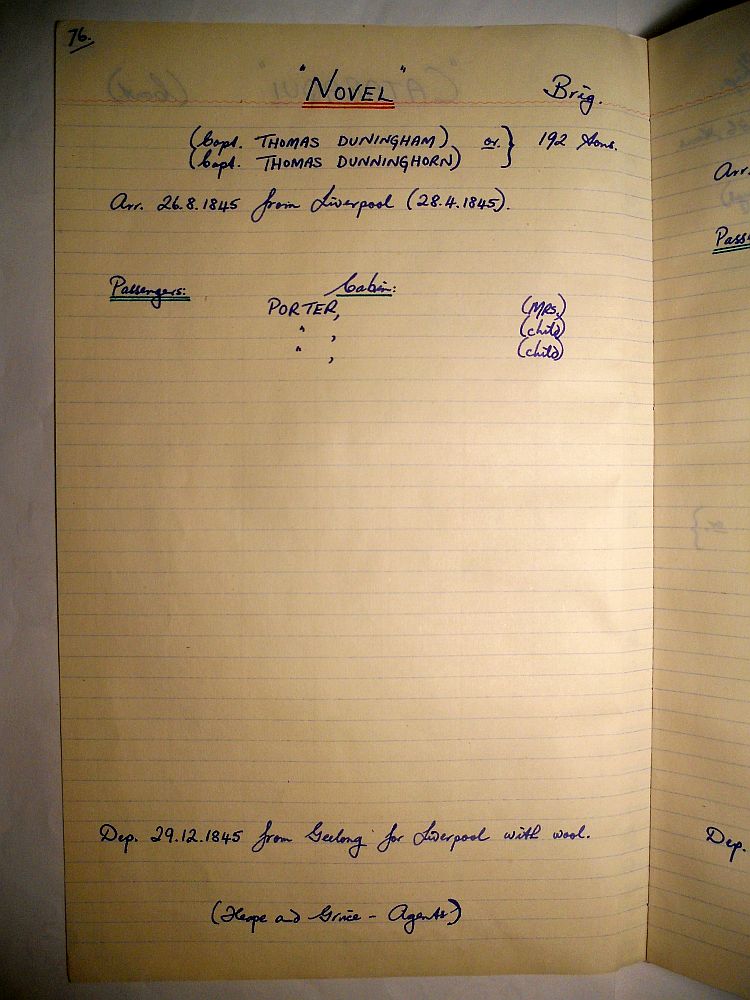 76.
"NOVEL" Brig.
(Capt. THOMAS DUNINGHAM) or } 192 tons.
(Capt. THOMAS DUNNINGHORN)
Arr. 26.8.1845 from Liverpool (28.4.1845).
Passengers: Cabin:
PORTER, (MRS.)
" , (child)
" , (child)
Dep. 29.12.1845 from Geelong for Liverpool with wool.
(Heape and Grice - Agents)
Arr.
Pass
Dep.